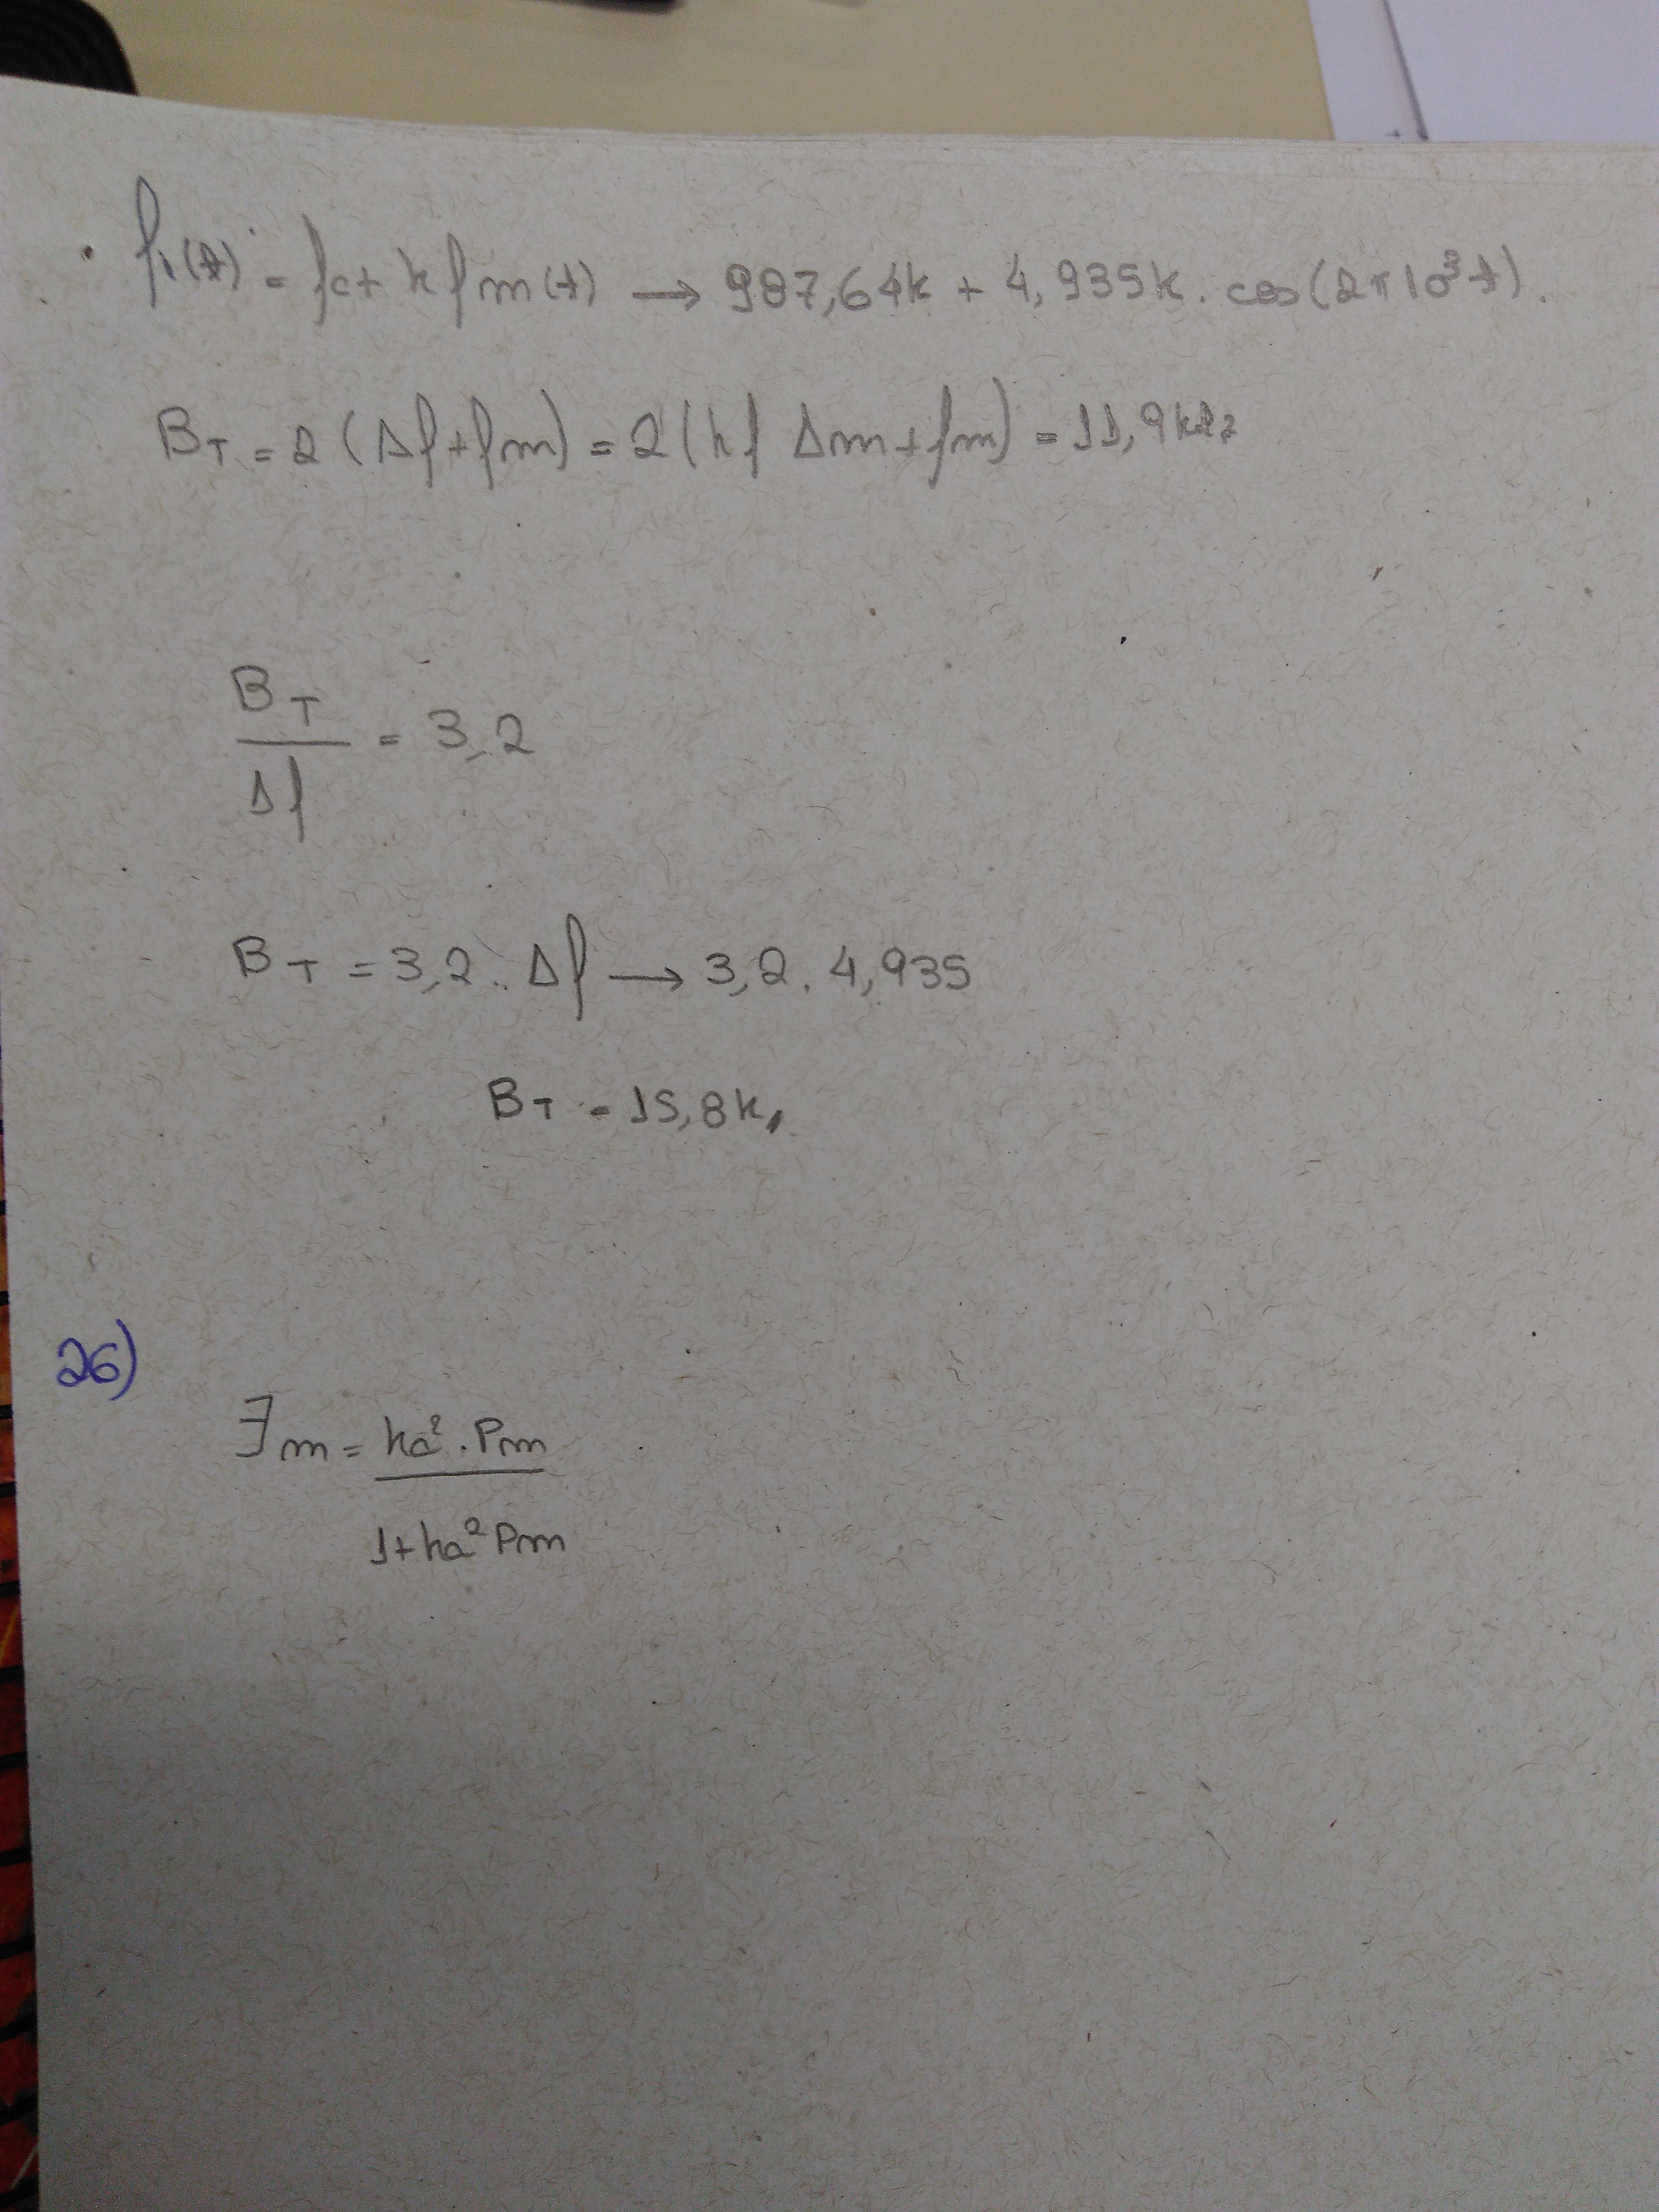 fi(t) = fc + kf m(t) → 987,64k + 4,935k. cos(2π10³t).
BT = 2(Δf+fm) = 2(kf Δm+fm) = 11,9kHz
BT
― = 3,2
Δf
BT = 3,2. Δf → 3,2. 4,935
BT = 15,8k
26)
∃m = ka². Pm
1+ka²Pm